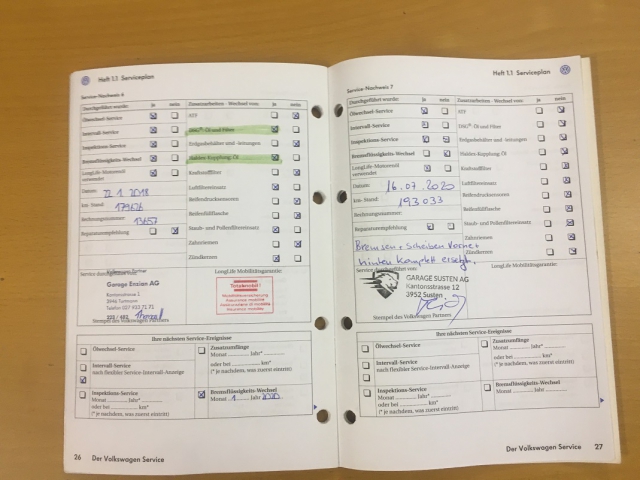 Heft 1.1 Serviceplan
Service-Nachweis 6
Durchgeführt wurde: ja nein Zusatzarbeiten - Wechsel von: ja nein
Ölwechsel-Service ATF
Intervall-Service DSG®-Öl und Filter
Inspektions-Service Erdgasbehälter und -leitungen
Bremsflüssigkeits-Wechsel Haldex-Kupplung-Öl
LongLife-Motorenöl verwendet Kraftstofffilter
Datum: 22.1.2018 Luftfiltereinsatz
km-Stand: 179626 Reifendrucksensoren
Rechnungsnummer: 13657 Reifenfüllflasche
Reparaturempfehlung Staub- und Pollenfiltereinsatz
Zahnriemen
Zündkerzen
Service durchgeführt von: LongLife Mobilitätsgarantie:
Volkswagen Partner
Garage Ensian AG
Kantonsstrasse 1
3946 Turtmann
Telefon 027 932 71 71
Totalmobil!
Stempel des Volkswagen Partners
Ihre nächsten Service-Ereignisse
Ölwechsel-Service Zusatzumfänge
Monat Jahr*
Intervall-Service oder bei km*
nach flexibler Service-Intervall-Anzeige (* je nachdem, was zuerst eintritt)
Inspektions-Service Bremsflüssigkeits-Wechsel
Monat Jahr* Monat 1 Jahr 2020
oder bei km*
(* je nachdem, was zuerst eintritt)
26 Der Volkswagen Service
Heft 1.1 Serviceplan
Service-Nachweis 7
Durchgeführt wurde: ja nein Zusatzarbeiten - Wechsel von: ja nein
Ölwechsel-Service ATF
Intervall-Service DSG®-Öl und Filter
Inspektions-Service Erdgasbehälter und -leitungen
Bremsflüssigkeits-Wechsel Haldex-Kupplung-Öl
LongLife-Motorenöl verwendet Kraftstofffilter
Datum: 16.07.2020 Luftfiltereinsatz
km-Stand: 193033 Reifendrucksensoren
Rechnungsnummer: Reifenfüllflasche
Reparaturempfehlung Staub- und Pollenfiltereinsatz
Zahnriemen
Zündkerzen
Bremsen + Scheiben Vorne +
hinten komplett ersetzt.
Service durchgeführt von: LongLife Mobilitätsgarantie:
GARAGE SUSTEN AG
Kantonsstrasse 12
3952 Susten
Stempel des Volkswagen Partners
Ihre nächsten Service-Ereignisse
Ölwechsel-Service Zusatzumfänge
Monat Jahr*
Intervall-Service oder bei km*
nach flexibler Service-Intervall-Anzeige (* je nachdem, was zuerst eintritt)
Inspektions-Service Bremsflüssigkeits-Wechsel
Monat Jahr* Monat Jahr
oder bei km*
(* je nachdem, was zuerst eintritt)
Der Volkswagen Service 27